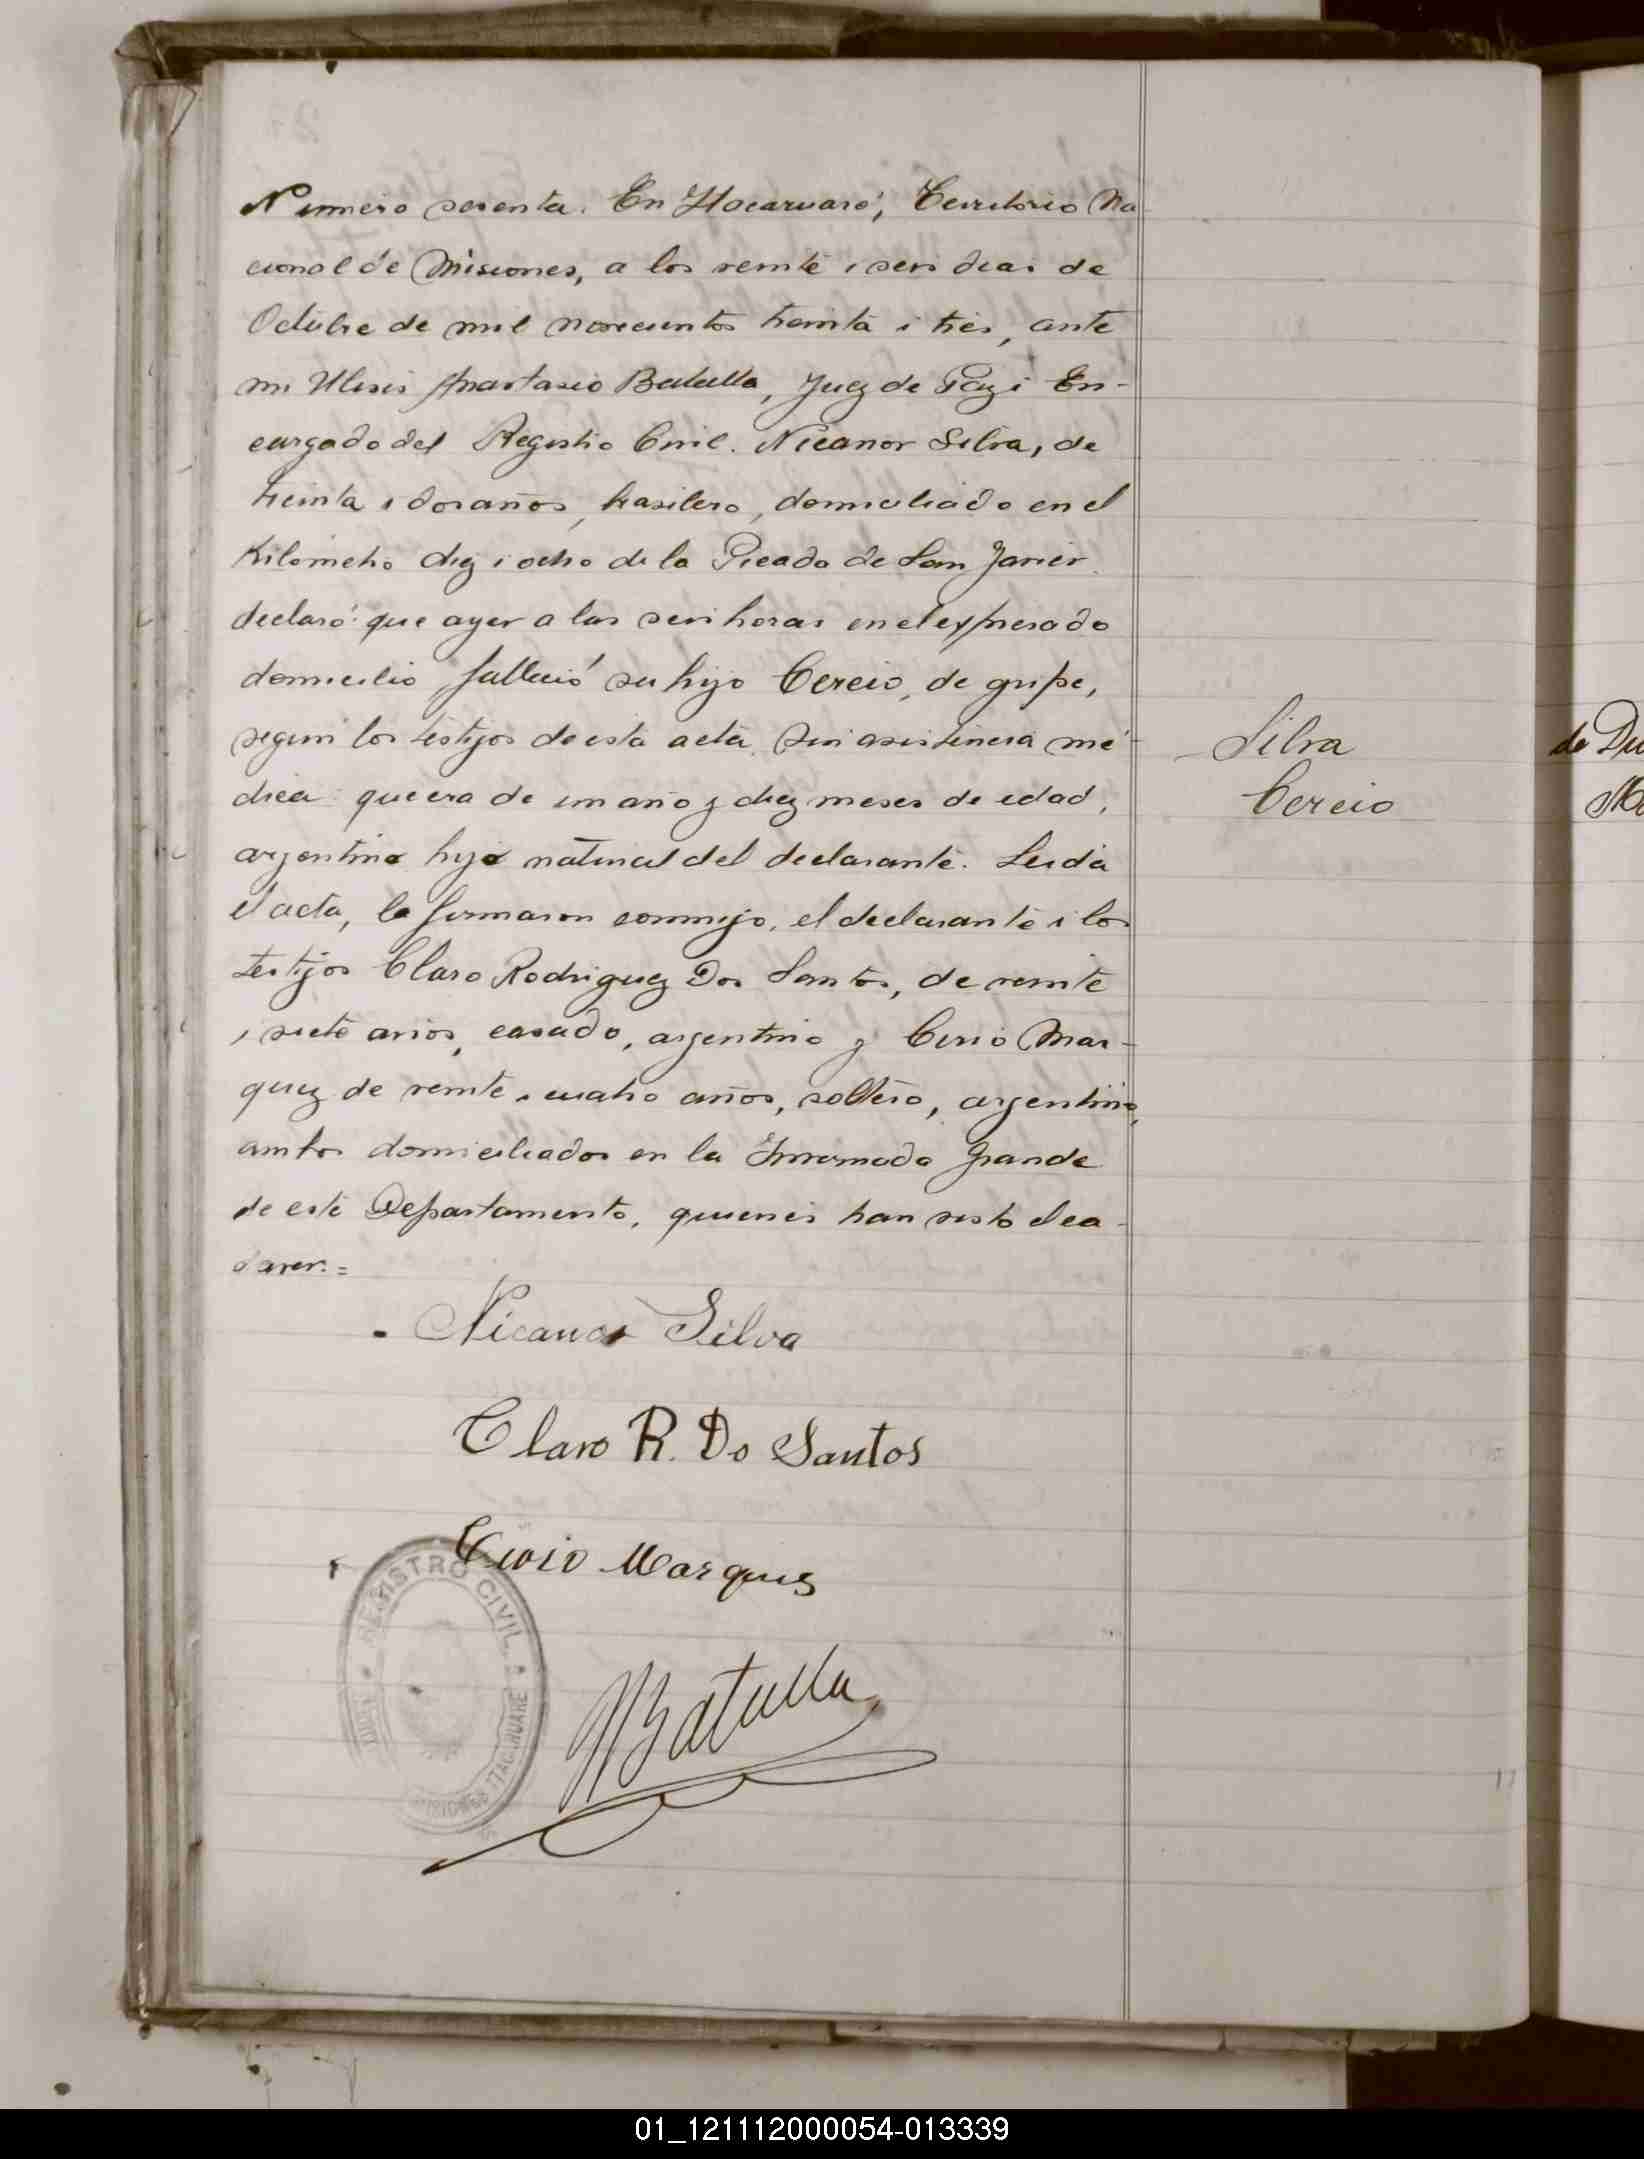 Número sesenta. En Itacaruaré, Territorio Na
cional de Misiones, a los veinte i seis dias de
Octubre de mil novecientos treinta i tres, ante
mi Ulises Anastasio Batulla, Juez de Paz i En-
cargado del Registro Civil. Nicanor Silva, de
treinta i dos años, brasilero, domiciliado en el
Kilómetro diez i ocho de la Picada de San Javier
declaró: que ayer a las seis horas en el expresado
domicilio falleció su hijo Cercio, de gripe,
segun los testijos de esta acta, sin asistencia mé-
dica: que era de un año y diez meses de edad,
argentino hijo natural del declarante. Leida
el acta, la firmaron conmigo, el declarante i los
testijos Claro Rodriguez Dos Santos, de veinte
i siete años, casado, argentino y Cirio Mar-
quez de veinte i cuatro años, soltero, argentino,
ambos domiciliados en la Invernada Grande
de este Departamento, quienes han visto el ca-
daver.=
Silva
Cercio
Nicanor Silva
Claro R. Do Santos
Cirio Marques
Batulla
REGISTRO CIVIL
MISIONES ITACARUARE
de Du
01_121112000054-013339